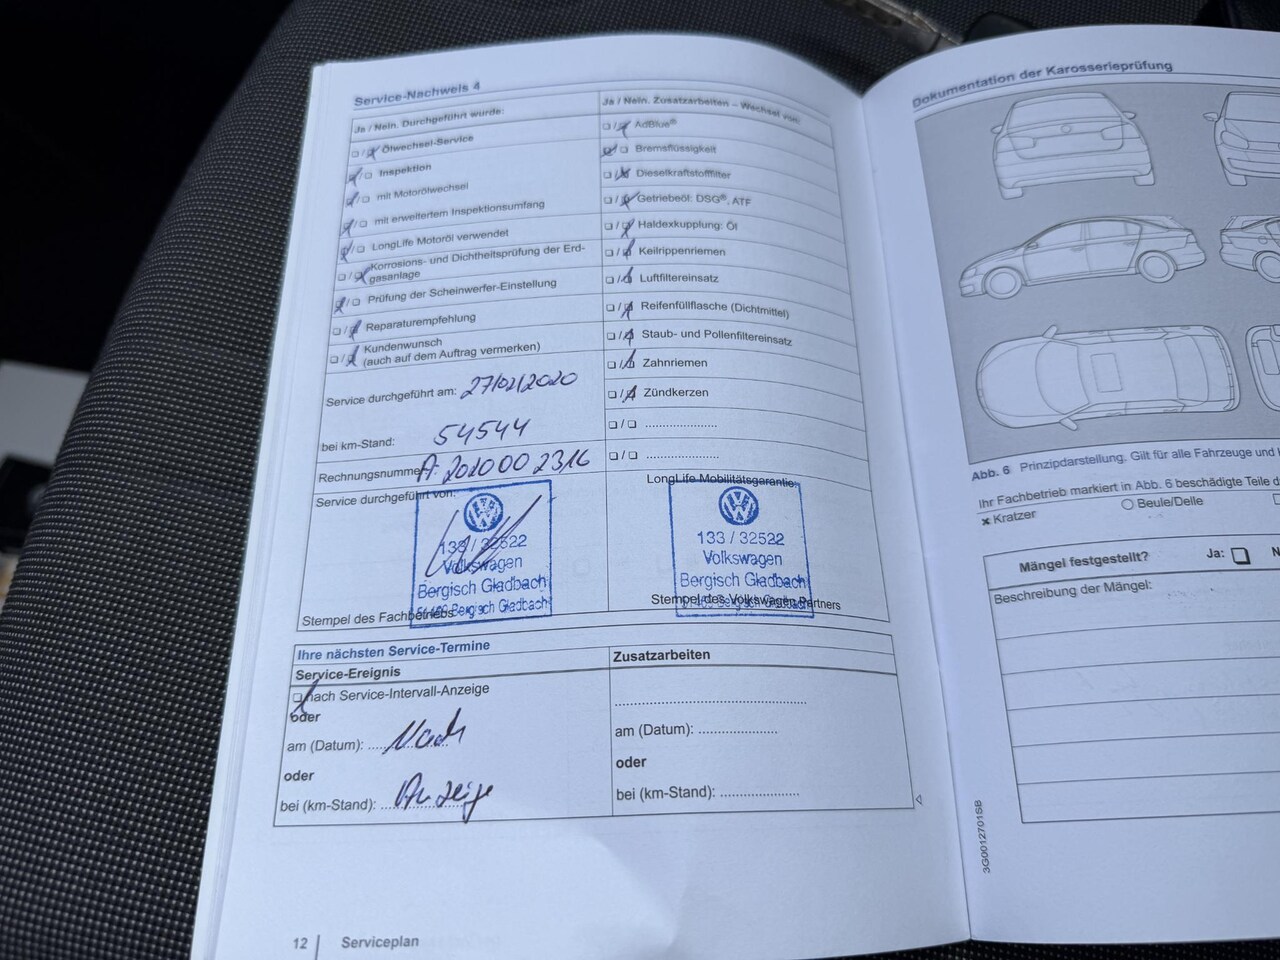 Service-Nachweis 4
Ja / Nein. Durchgeführt wurde:
Ölwechsel-Service
Inspektion
mit Motorölwechsel
mit erweitertem Inspektionsumfang
LongLife Motoröl verwendet
Korrosions- und Dichtheitsprüfung der Erd-
gasanlage
Prüfung der Scheinwerfer-Einstellung
Reparaturempfehlung
Kundenwunsch
(auch auf dem Auftrag vermerken)
Service durchgeführt am: 27/02/2020
bei km-Stand: 54544
Rechnungsnummer: A 2020002316
Service durchgeführt von:
133 / 32522
Volkswagen
Bergisch Gladbach
Bergisch Gladbach
Stempel des Fachbetriebs
Ja / Nein. Zusatzarbeiten – Wechsel von:
AdBlue®
Bremsflüssigkeit
Dieselkraftstofffilter
Getriebeöl: DSG®, ATF
Haldexkupplung: Öl
Keilrippenriemen
Luftfiltereinsatz
Reifenfüllflasche (Dichtmittel)
Staub- und Pollenfiltereinsatz
Zahnriemen
Zündkerzen
LongLife Mobilitätsgarantie:
133 / 32522
Volkswagen
Bergisch Gladbach
Stempel des Volkswagen Partners
Ihre nächsten Service-Termine
Service-Ereignis
nach Service-Intervall-Anzeige
oder
am (Datum): Nach
oder
bei (km-Stand): Anzeige
Zusatzarbeiten
am (Datum):
oder
bei (km-Stand):
12 Serviceplan
Dokumentation der Karosserieprüfung
Abb. 6 Prinzipdarstellung. Gilt für alle Fahrzeuge und
Ihr Fachbetrieb markiert in Abb. 6 beschädigte Teile
Kratzer
Beule/Delle
Mängel festgestellt? Ja:
Beschreibung der Mängel:
3G0012701SB